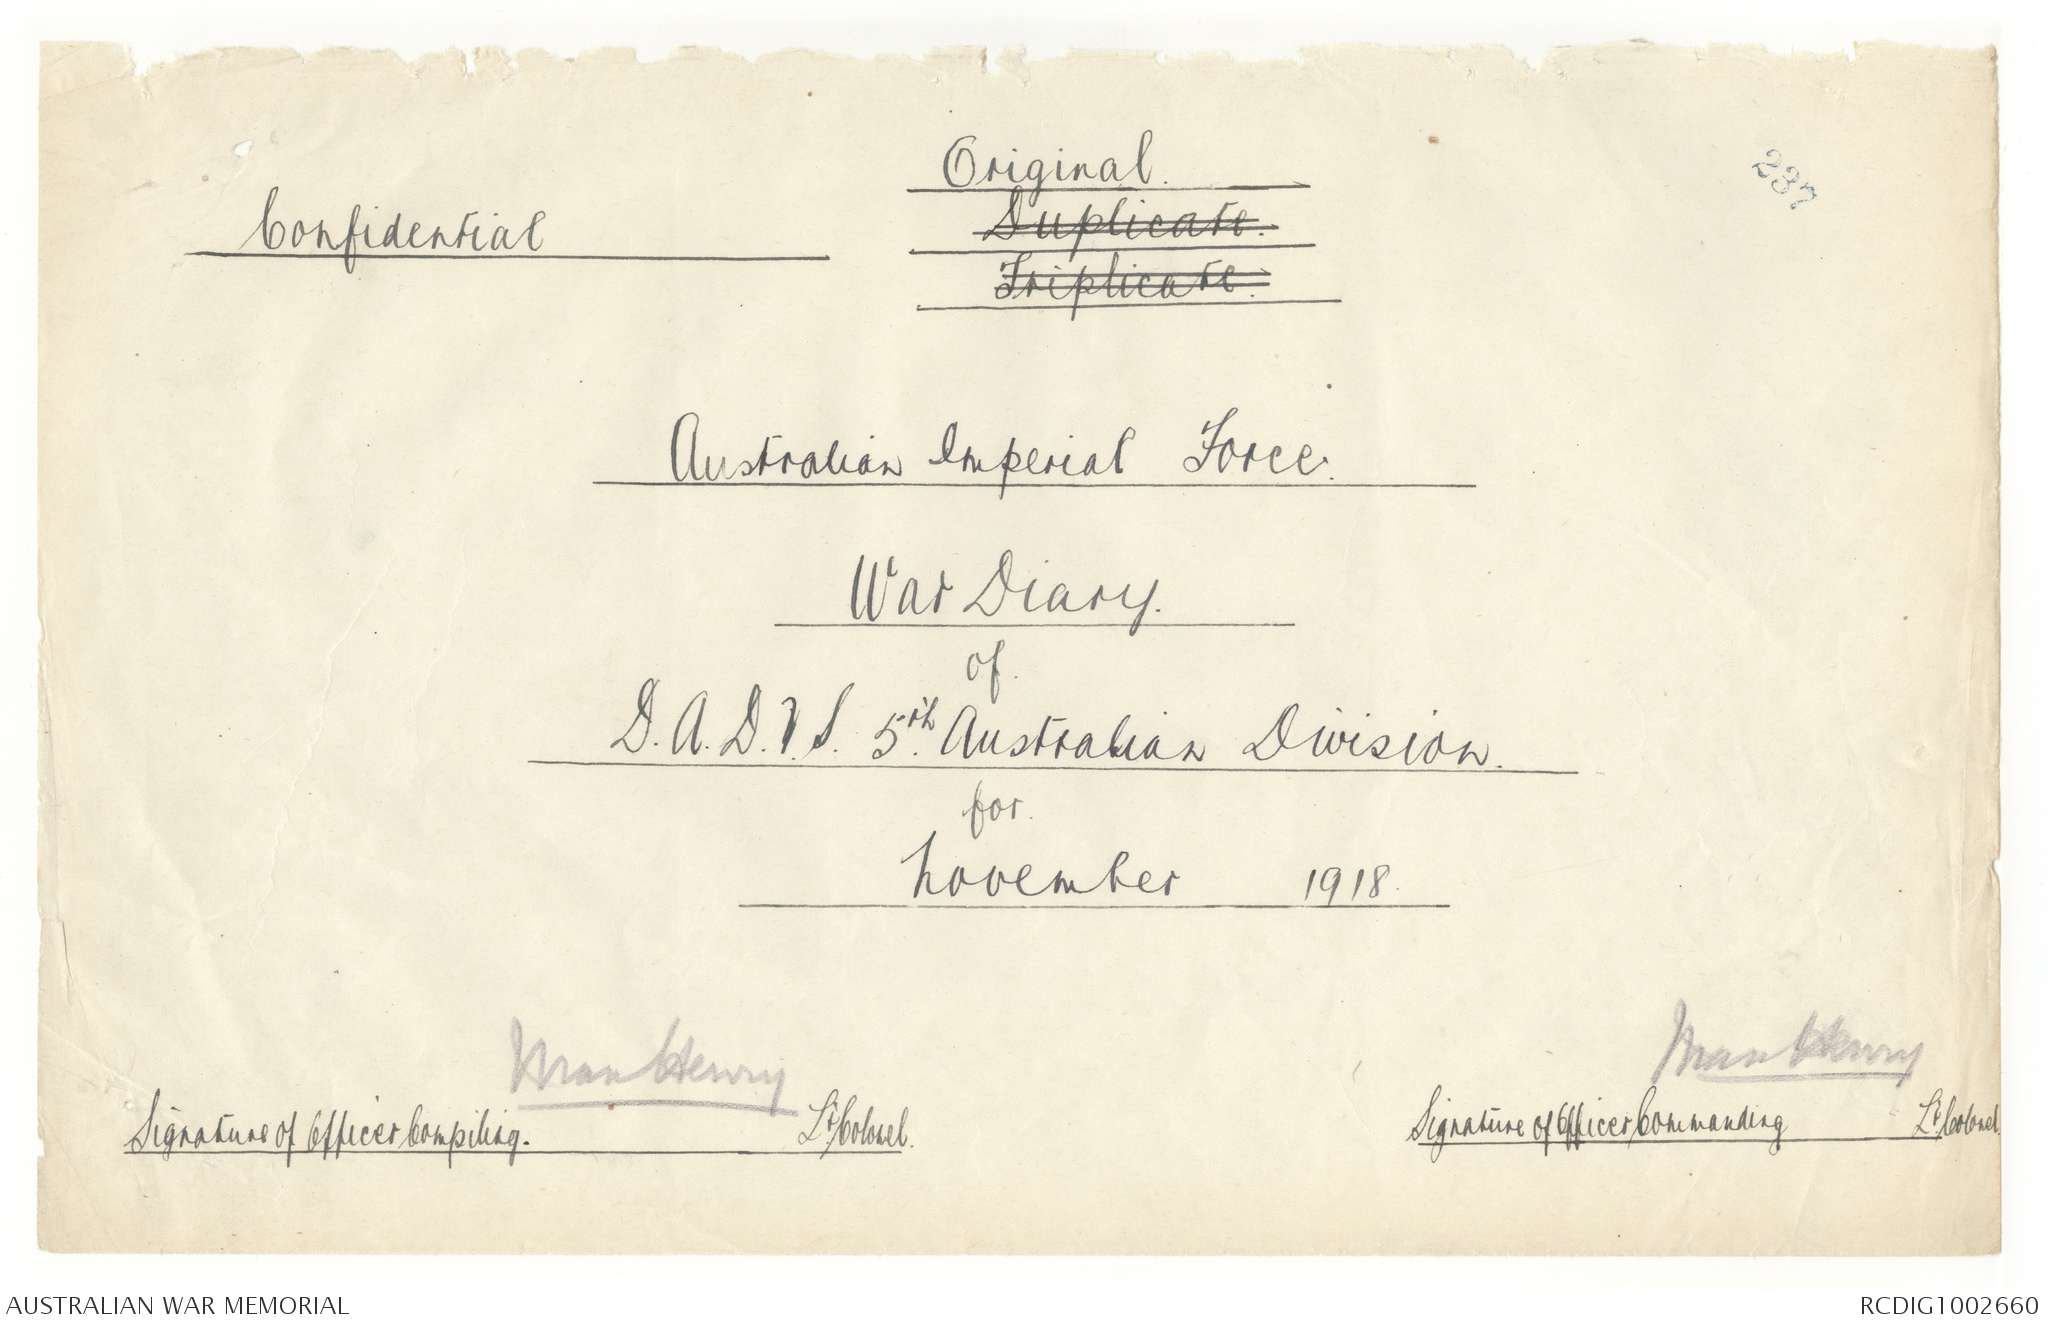 Original.
237
Confidential
Duplicate.
Triplicate.
Australian Imperial Force.
War Diary.
of.
D.A.D.V.S. 5th. Australian Division.
for.
November 1918.
Max Henry
Max Henry
Signature of Officer Compiling. Lt Colonel.
Signature of Officer Commanding Lt Colonel.
AUSTRALIAN WAR MEMORIAL
RCDIG1002660